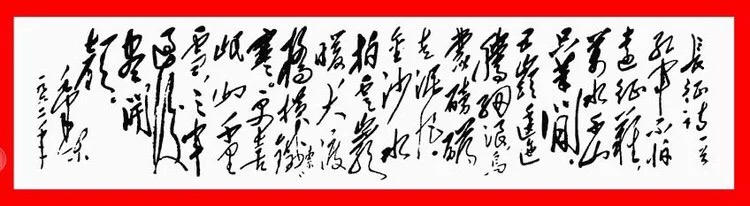 長征詩一首
紅軍不怕
遠征難，
萬水千山
只等閒。
五嶺逶迤
騰細浪，烏
蒙磅礴
走泥丸。
金沙水
拍雲巖
暖，大渡
橋橫鐵索
寒。更喜
岷山千里
雪，三軍
過後
盡開
顏。
毛澤東
一九六二年